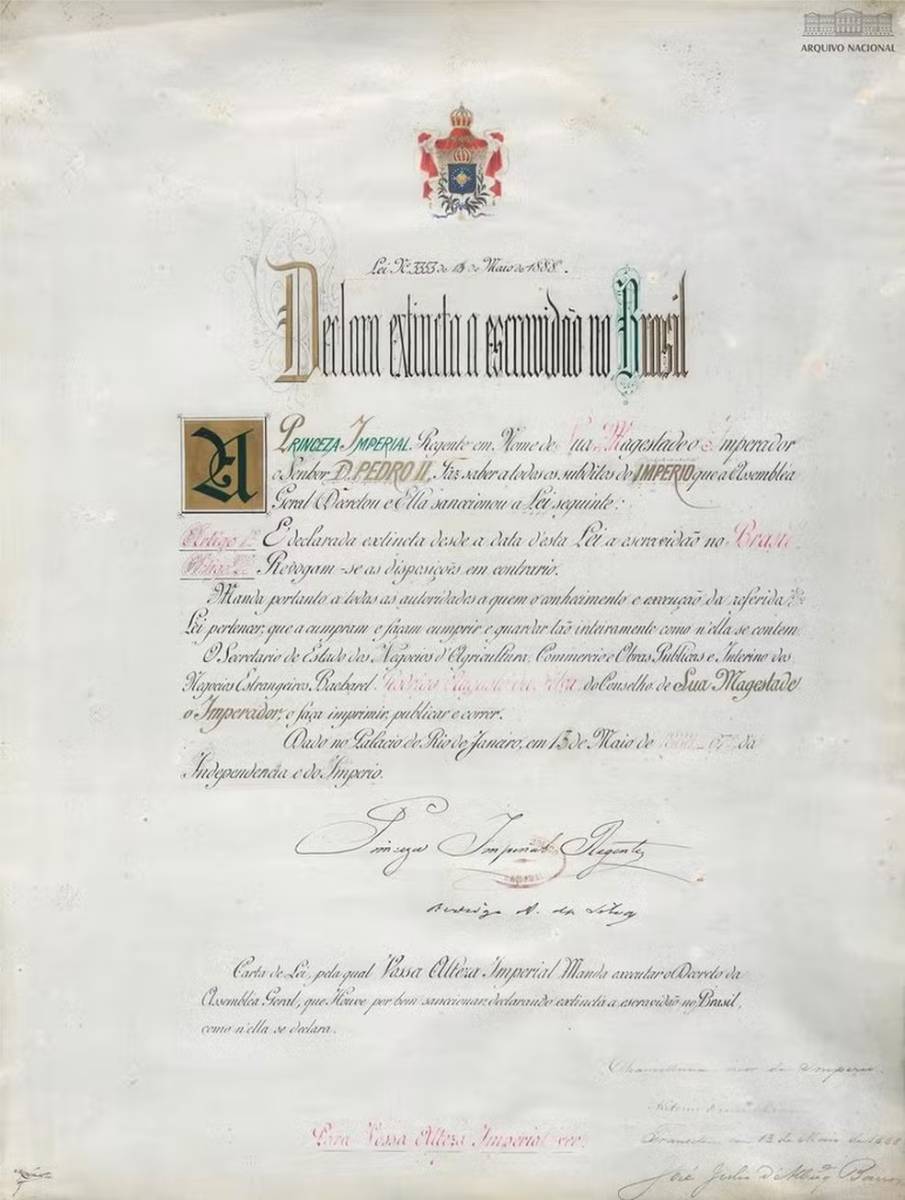 ARQUIVO NACIONAL
Lei Nº 3353 de 13 de Maio de 1888.
Declara extincta a escravidão no Brasil
A PRINCEZA IMPERIAL Regente em Nome de Sua Magestade o Imperador
o Senhor D. PEDRO II, Faz saber a todos os subditos do IMPERIO que a Assembléa
Geral Decretou e Ella sanccionou a Lei seguinte:
Artigo 1º É declarada extincta desde a data d'esta Lei a escravidão no Brasil.
Revogam-se as disposições em contrario.
Manda portanto a todas as autoridades a quem o conhecimento e execução da referida
Lei pertencer, que a cumpram e façam cumprir e guardar tão inteiramente como n'ella se contem.
O Secretario de Estado dos Negocios d'Agricultura, Commercio e Obras Publicas e Interino dos
Negocios Estrangeiros, Bacharel Rodrigo Augusto da Silva, do Conselho de Sua Magestade
o Imperador, o faça imprimir, publicar e correr.
Dado no Palacio do Rio de Janeiro, em 13 de Maio de 67º da
Independencia e do Imperio.
Princeza Imperial Regente
Rodrigo A. da Silva
Carta de Lei, pela qual Vossa Alteza Imperial Manda executar o Decreto da
Assembléa Geral, que Houve por bem sanccionar, declarando extincta a escravidão no Brasil,
como n'ella se declara.
Para Vossa Alteza Imperial ver.
Chancellaria mór do Imperio.
13 de Maio de 1888
José Julio d'Albuqº Barros